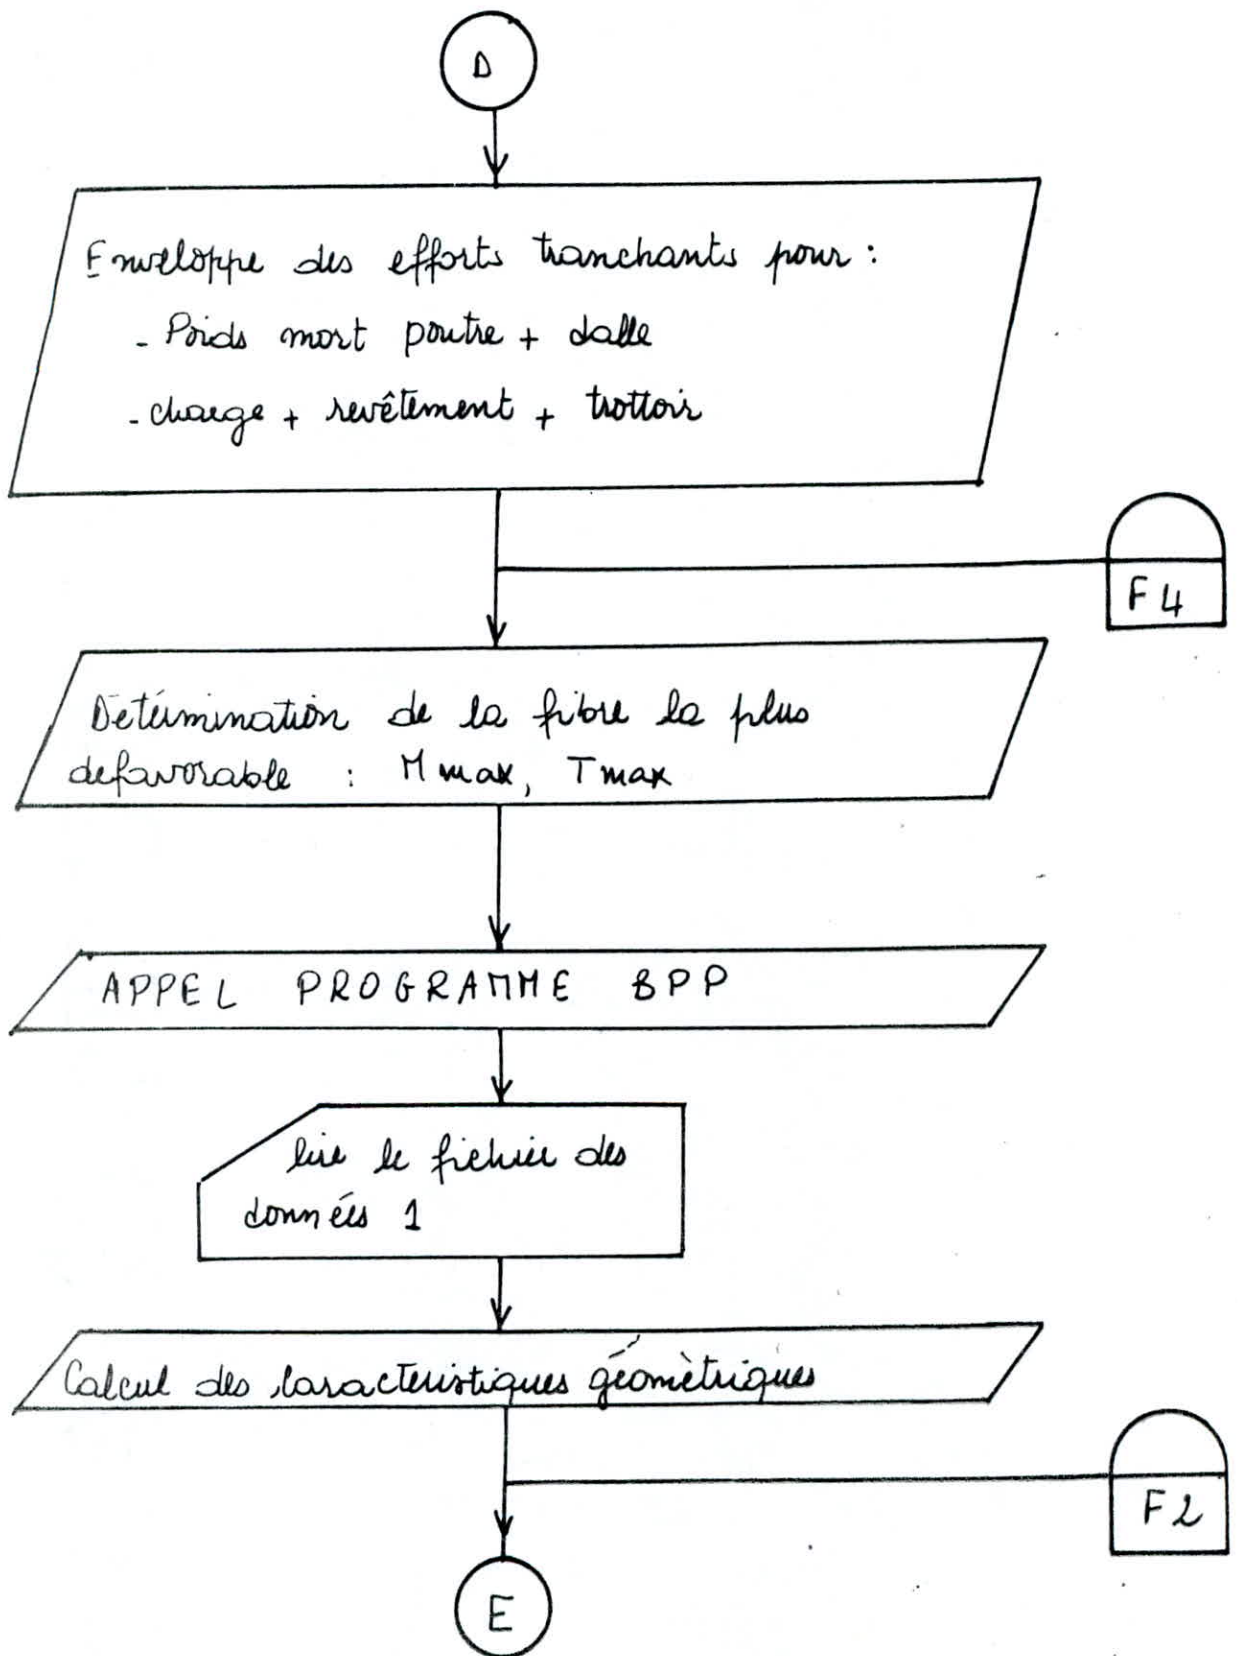 D
Enveloppe des efforts tranchants pour :
- Poids mort poutre + dalle
- charge + revêtement + trottoir
F4
Détermination de la fibre la plus
defavorable : M max, T max
APPEL PROGRAMME BPP
lire le fichier des
données 1
Calcul des caracteristiques géomètriques
F2
E